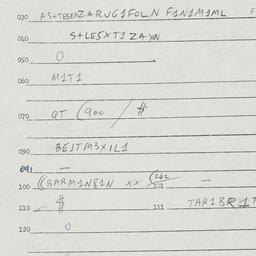 030 AS+TEGRNZARUG1FOLN F1N1M1ML F
040 S+LESXT1ZAXN
050 0
060 M1T1
070 QT (900 / #
090 BEJTM3XIL1
091 —
100 ((BARM1N81N XX (262 101 —
110 $ 111 TAR1BR1T
120 0